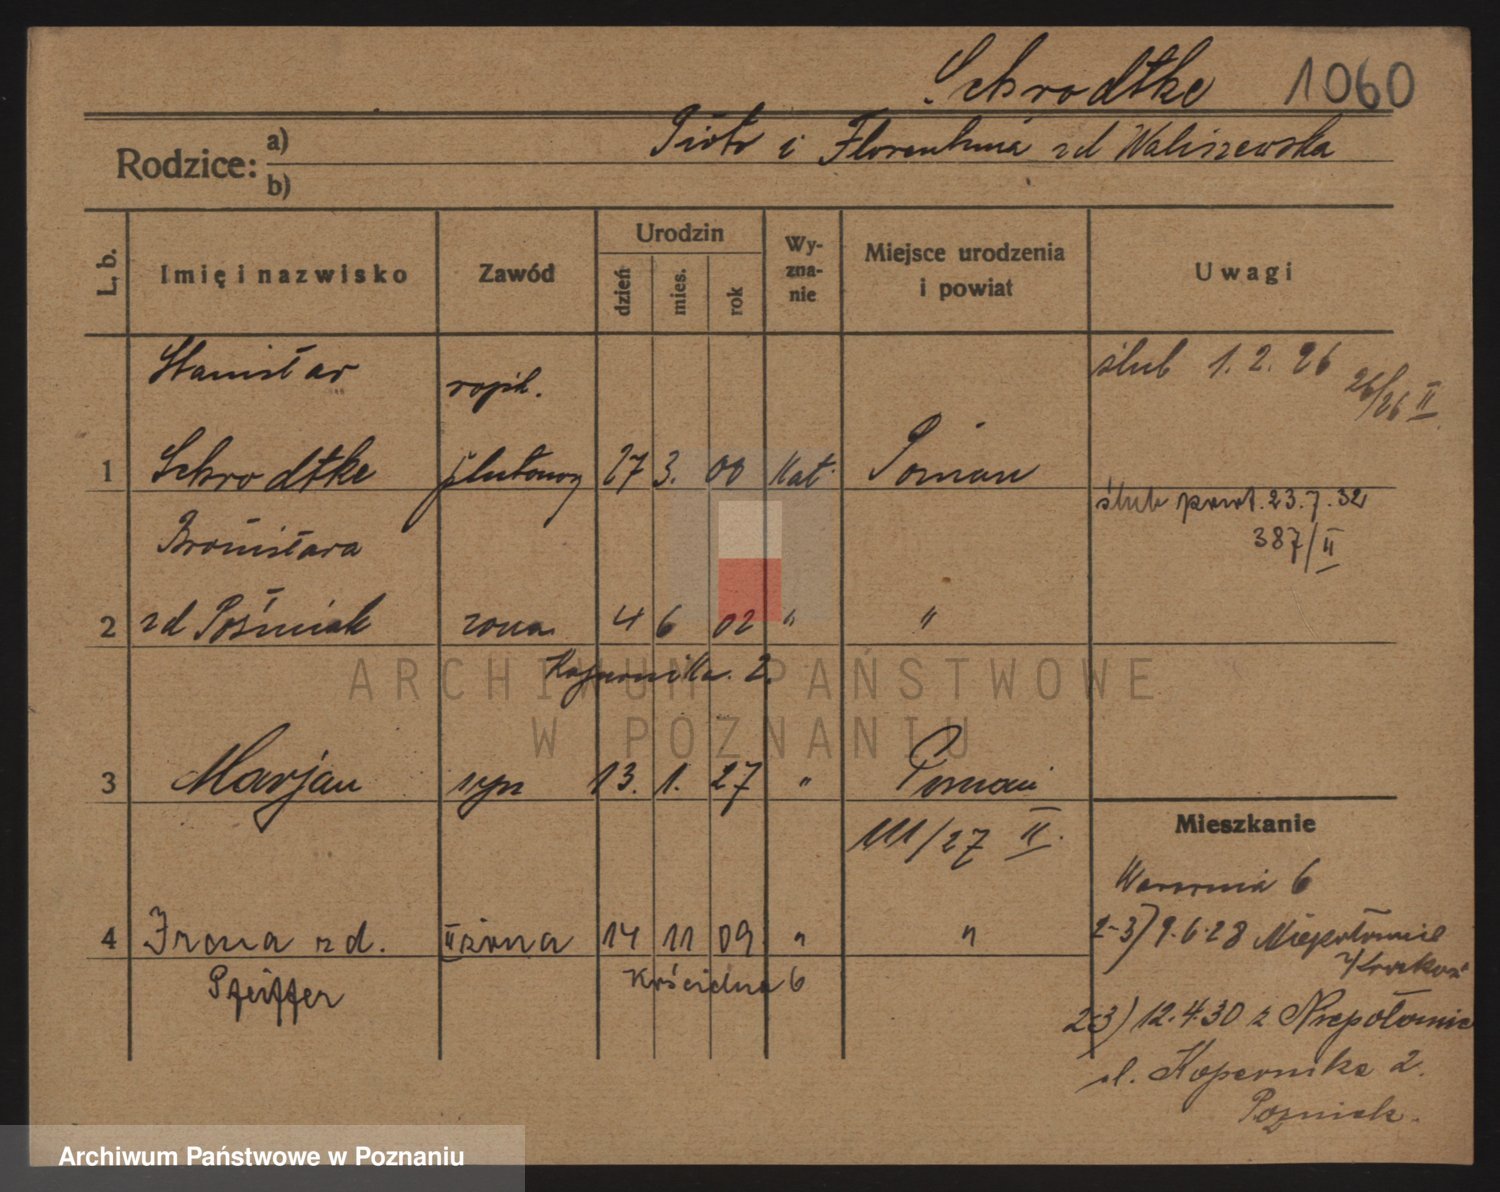 Schrodtke 1060
Rodzice: a) b)
Piotr i Florentyna zd Waliszewska
L. b. Imię i nazwisko Zawód Urodzin dzień mies. rok Wy-zna-nie Miejsce urodzenia i powiat Uwagi
Stanisław ślub 1.2.26 26/26 II
1 Schrodtke plutonowy 27 3. 00 Kat. Poznań
ślub pows. 23.7.32
387/II
Bronisława
2 zd Pośniak żona 4 6 02 " "
Kopernika 2.
3 Marjan syn 13. 1. 27 " Poznań
111/27 II.
Mieszkanie
6
4 Irena zd. II żona 14 11 09 " "
2-3) 9.6.28 Niepołomice
Pfeiffer Kościelna 6
2-3) 12.4.30 z Niepołomic
ul. Kopernika 2.
Pozniak.
ARCHIWUM PAŃSTWOWE
W POZNANIU
Archiwum Państwowe w Poznaniu